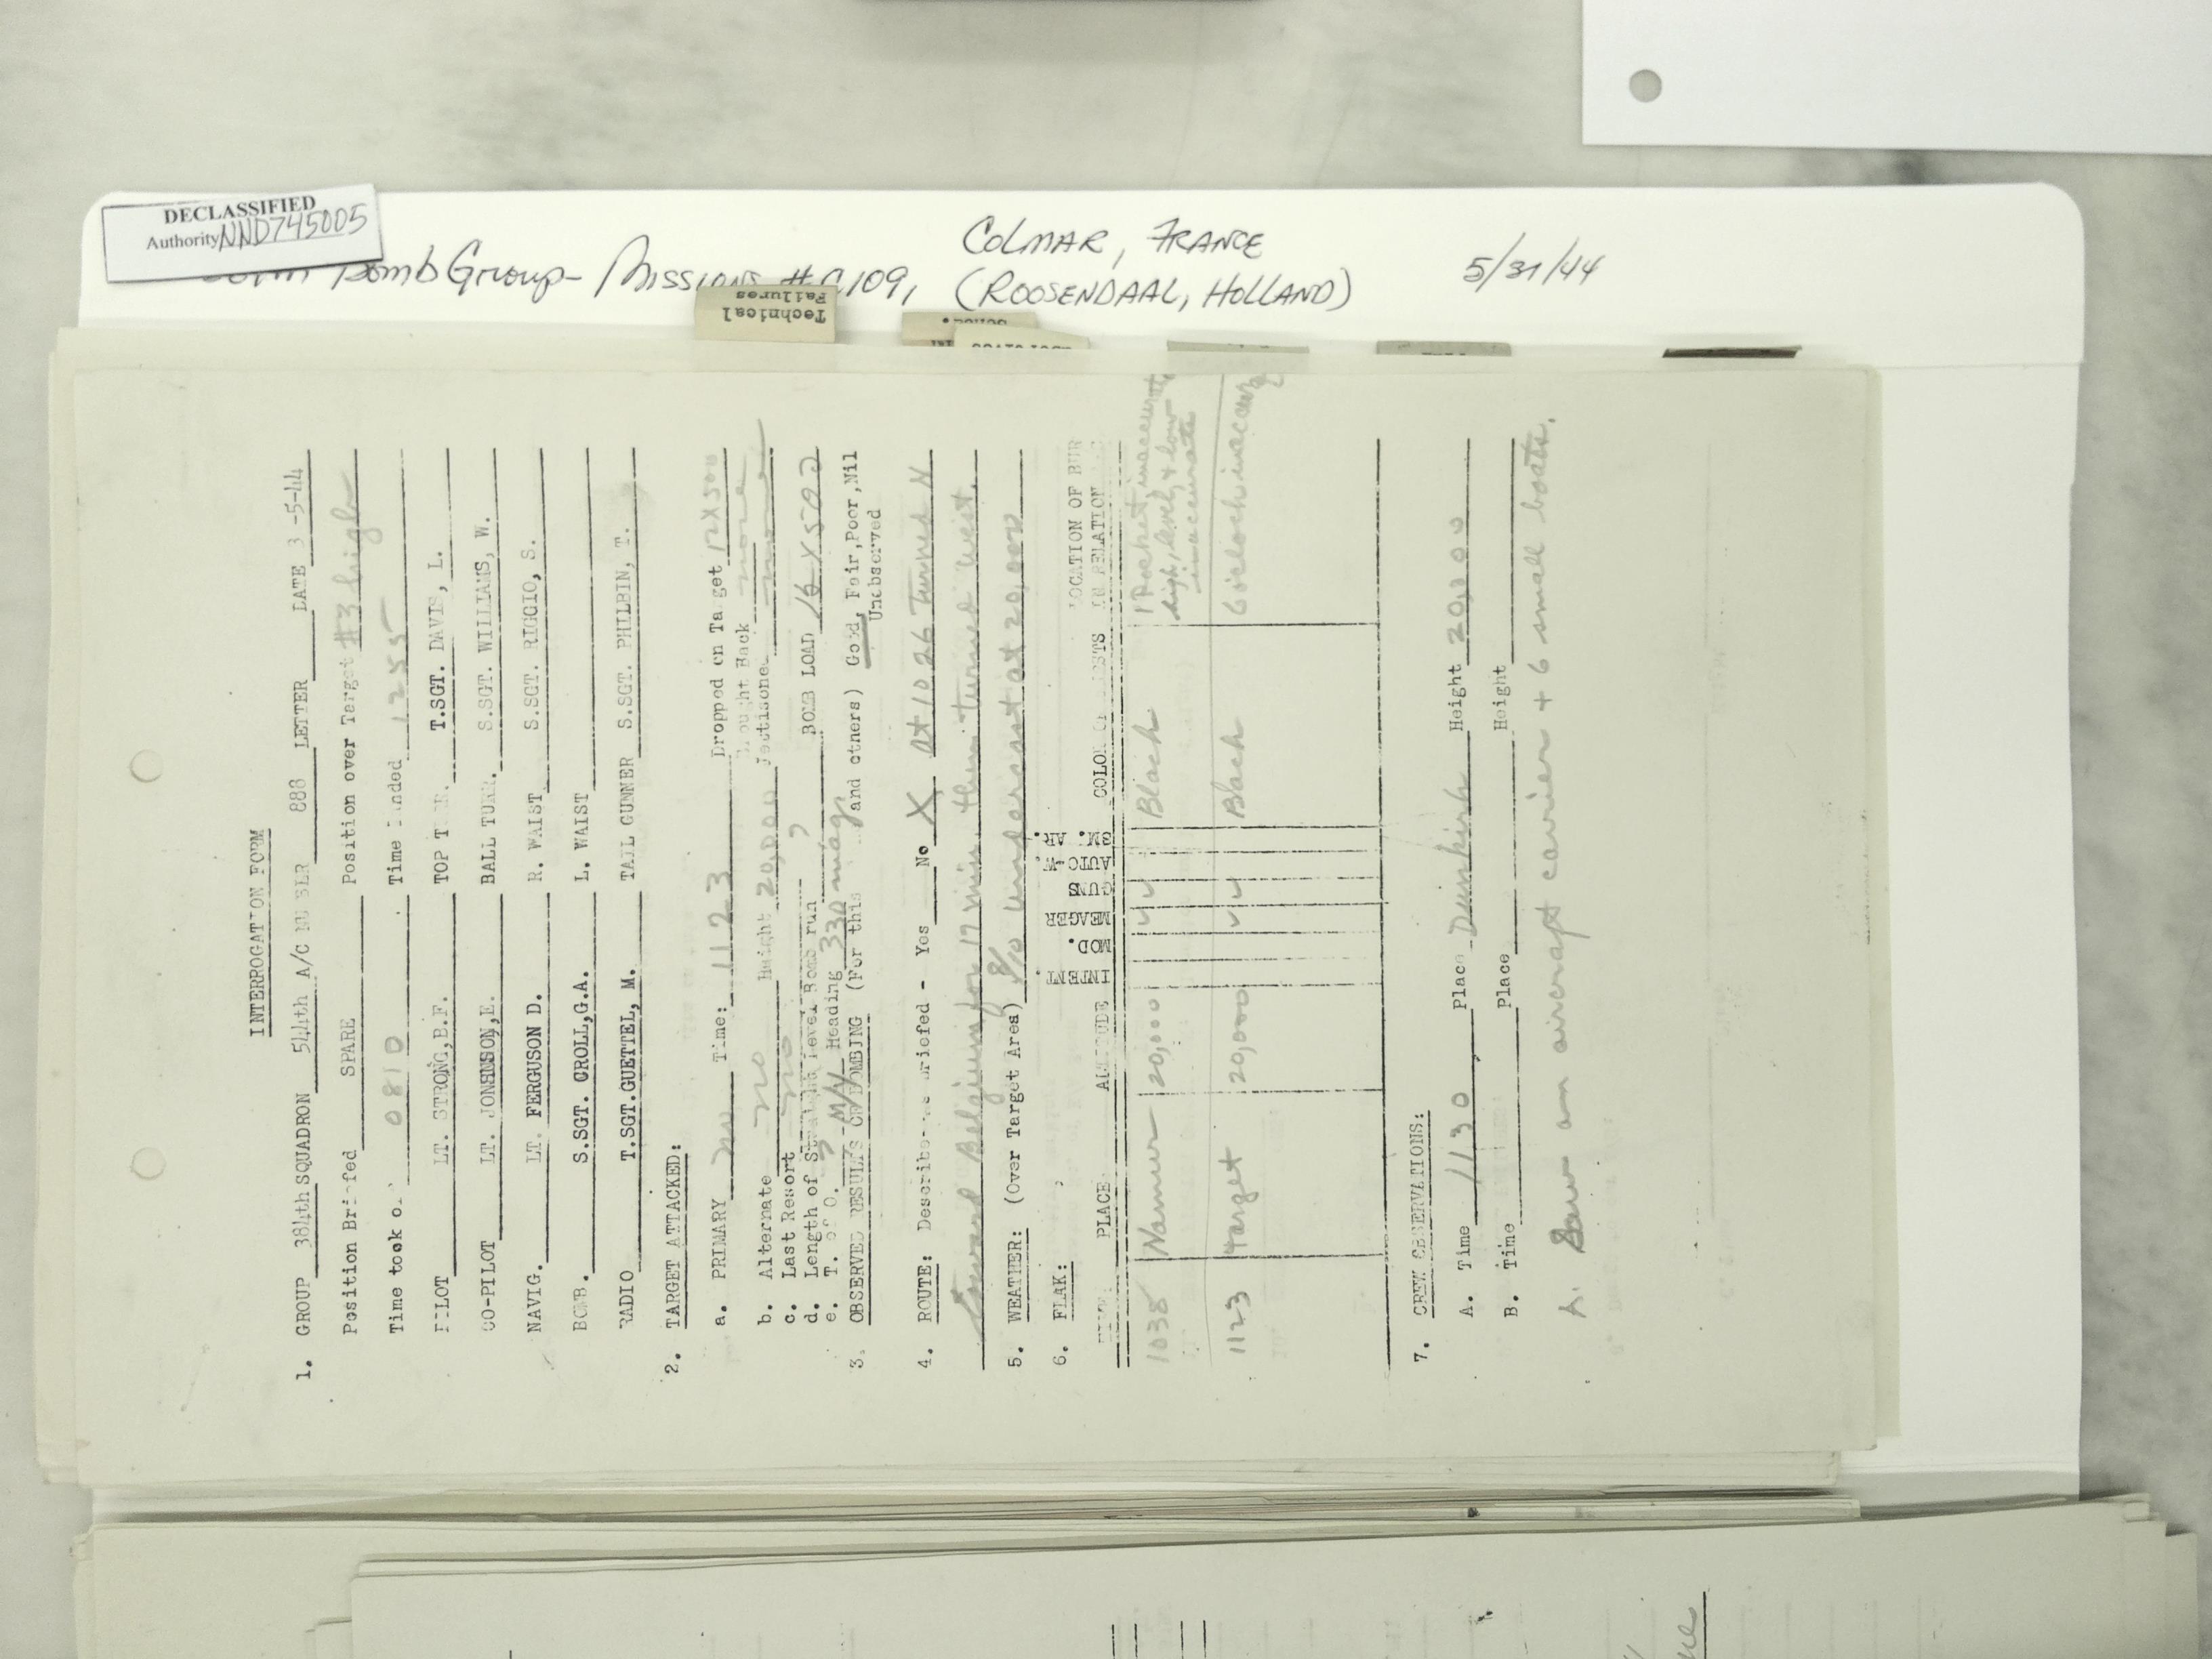 DECLASSIFIED
Authority NND745005
Bomb Group - Missions # 109,
COLMAR, FRANCE
(ROOSENDAAL, HOLLAND)
5/31/44
Technical
Failures
INTERROGATION FORM
1. GROUP 384th SQUADRON 544th A/C 888 LETTER DATE 3 -5-44
Position Briefed SPARE Position over Target #3 high
Time took 0810 Time landed 1255
PILOT LT. STRONG,B.F. TOP T.SGT. DAVIS, L.
CO-PILOT LT. JOHNSON,E. BALL TURR. S.SGT. WILLIAMS, W.
NAVIG. LT. FERGUSON D. R. WAIST S.SGT. RIGGIO, S.
BOMB. S.SGT. CROLL,G.A. L. WAIST
RADIO T.SGT.GUETTEL, M. TAIL GUNNER S.SGT. PHLBIN, T.
2. TARGET ATTACKED:
a. PRIMARY no Time: 1123 Dropped on Target 12X500
Brought Back none
b. Alternate no Height 20,000 Jettisoned none
c. Last Resort no
d. Length of Straight Level Bomb run ? BOMB LOAD
e. T. of O. M/Y Heading 330 mag
3. OBSERVED RESULTS OF BOMBING (For this and others) Good, Fair,Poor,Nil
Unobserved
4. ROUTE: Describe as briefed - Yes No X At 1026 turned N
toward Belgium for 17 min. then turned west.
5. WEATHER: (Over Target Area) 8/10 undercast at 20,000
6. FLAK:
PLACE ALTITUDE INTENT. MOD. MEAGER GUNS AUTO-W. SM. AR. COLOR OF BURSTS LOCATION OF BUR
IN RELATION
1038 Namur 20,000 ✓ ✓ Black 1 Rocket inaccurate
high, level, & low
inaccurate
1123 target 20,000 ✓ ✓ Black 6 oclock
7. CREW OBSERVATIONS:
A. Time 1130, Place Dunkirk Height 20,000
B. Time Place Height
A. Saw an aircraft carrier + 6 small boats.